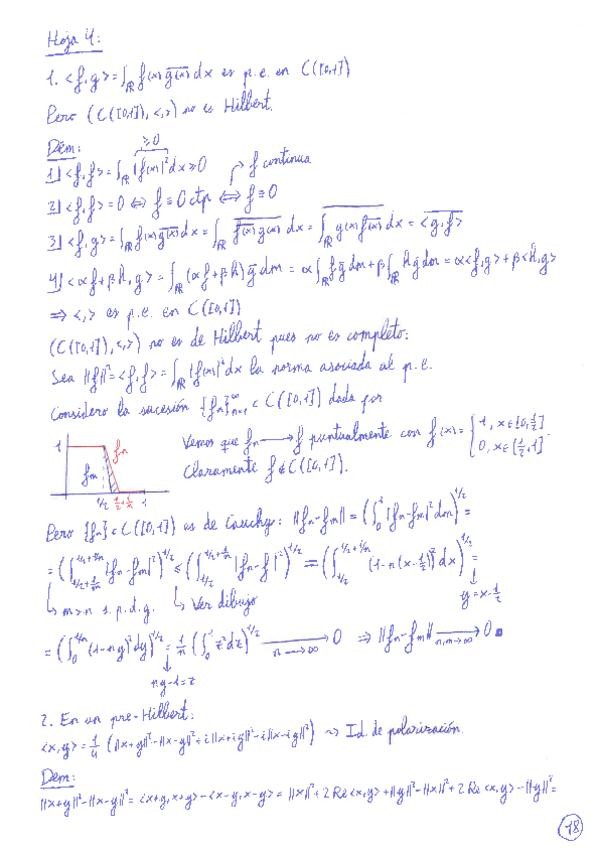 Hoja 4:
1. <f,g> = ∫_ℝ f(x) \overline{g(x)} dx es p.e. en C([0,1])
Pero (C([0,1]), <,>) no es Hilbert.
Dem:
≥0
1) <f,f> = ∫_ℝ |f(x)|² dx ≥ 0
f continua
2) <f,f> = 0 ⟺ f ≡ 0 ctp ⟺ f ≡ 0
3) <f,g> = ∫_ℝ f(x) \overline{g(x)} dx = ∫_ℝ \overline{\overline{f(x)} g(x)} dx = \overline{∫_ℝ g(x) \overline{f(x)} dx} = \overline{<g,f>}
4) <αf+βh, g> = ∫_ℝ (αf+βh) \overline{g} dm = α ∫_ℝ f \overline{g} dm + β ∫_ℝ h \overline{g} dm = α<f,g> + β<h,g>
⟹ <,> es p.e. en C([0,1])
(C([0,1]), <,>) no es de Hilbert pues no es completo:
Sea ||f||² = <f,f> = ∫_ℝ |f(x)|² dx la norma asociada al p.e.
Considero la sucesión {f_n}_{n=1}^∞ ⊂ C([0,1]) dada por
1 f_n f_m 1/2 1/2+1/n 1
Vemos que f_n ⟶ f puntualmente con f(x) = { 1, x∈[0,1/2] ; 0, x∈[1/2,1].
Claramente f ∉ C([0,1]).
Pero {f_n} ⊂ C([0,1]) es de Cauchy: ||f_n-f_m|| = (∫_0^1 |f_n-f_m|² dm)^{1/2} =
= (∫ |f_n-f_m|²)^{1/2} ≤ (∫_{1/2}^{1/2+1/n} |f_n-f|²)^{1/2} = (∫_{1/2}^{1/2+1/n} (1-n(x-1/2))² dx)^{1/2} =
m>n s.p.d.g. Ver dibujo y=x-1/2
= (∫_0^{1/n} (1-ny)² dy)^{1/2} = (∫ z² dz)^{1/2} ⟶_{n→∞} 0 ⟹ ||f_n-f_m|| ⟶_{n,m→∞} 0 ■
ny-1=z
2. En un pre-Hilbert:
<x,y> = 1/4 (||x+y||²-||x-y||²+i||x+iy||²-i||x-iy||²) ⇝ Id. de polarización.
Dem:
||x+y||²-||x-y||² = <x+y,x+y> - <x-y,x-y> = ||x||²+2Re<x,y>+||y||²-||x||²+2Re<x,y>-||y||² =
18